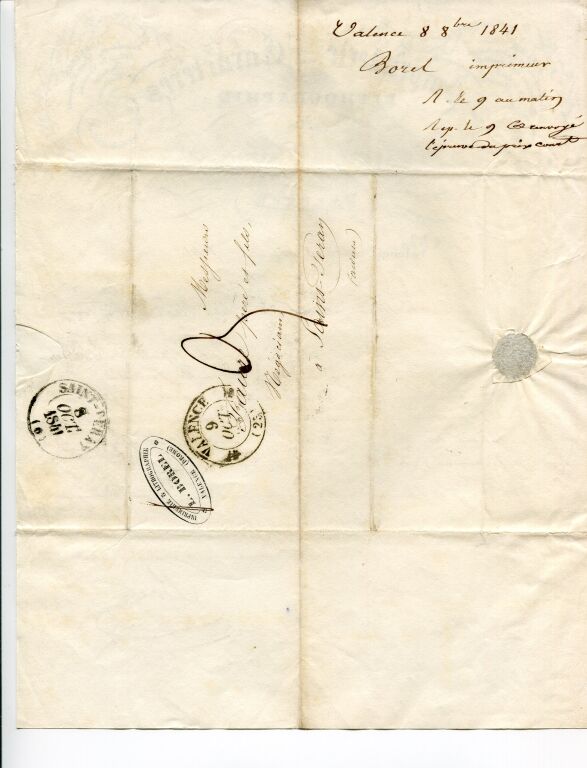 Valence 8 8bre 1841
Borel imprimeur
R. le 9 au matin
Rep. le 9 & renvoyé
l'épreuve du prix court
Messieurs
père et fils,
Négociants
à Saint-Peray
(Ardèche)
VALENCE
9
OCT
(25)
SAINT-PERAY
8
OCT.
1841
(6)
IMPRIMERIE & LITHOGRAPHIE
L. BOREL
VALENCE (DROME)